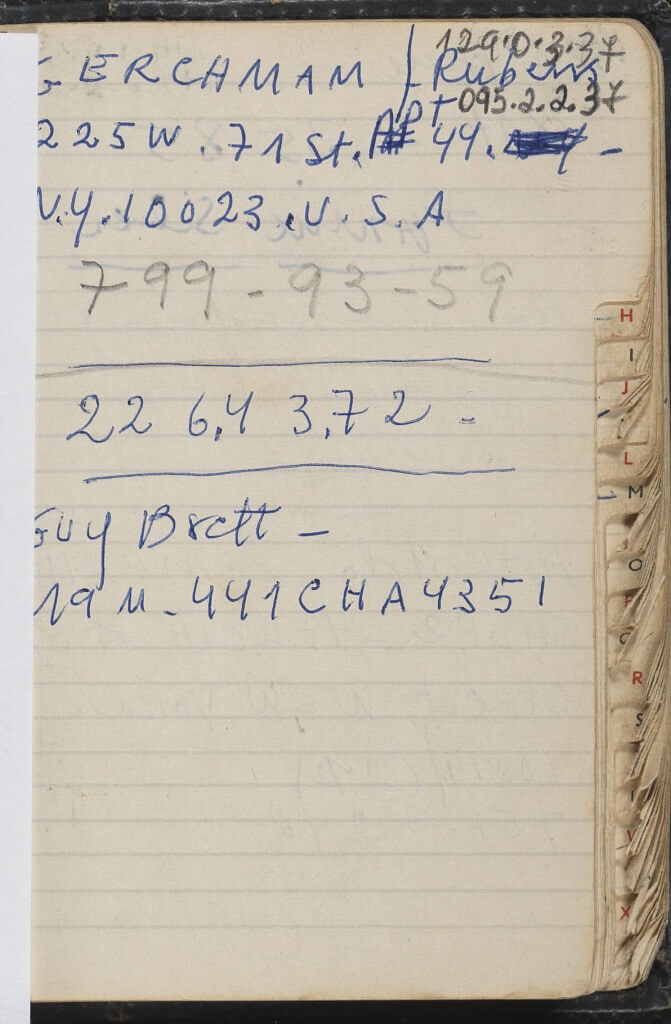 129.0.3.37
GERCHMAM / Rubens
Apt 095.2.2.37
225 W. 71 St. 44. -
N.Y. 10023. U.S.A
799-93-59
226,43,72 -
Guy Brett -
19 M - 441 CHA 4351
H
I
J
L
M
O
P
Q
R
S
V
X